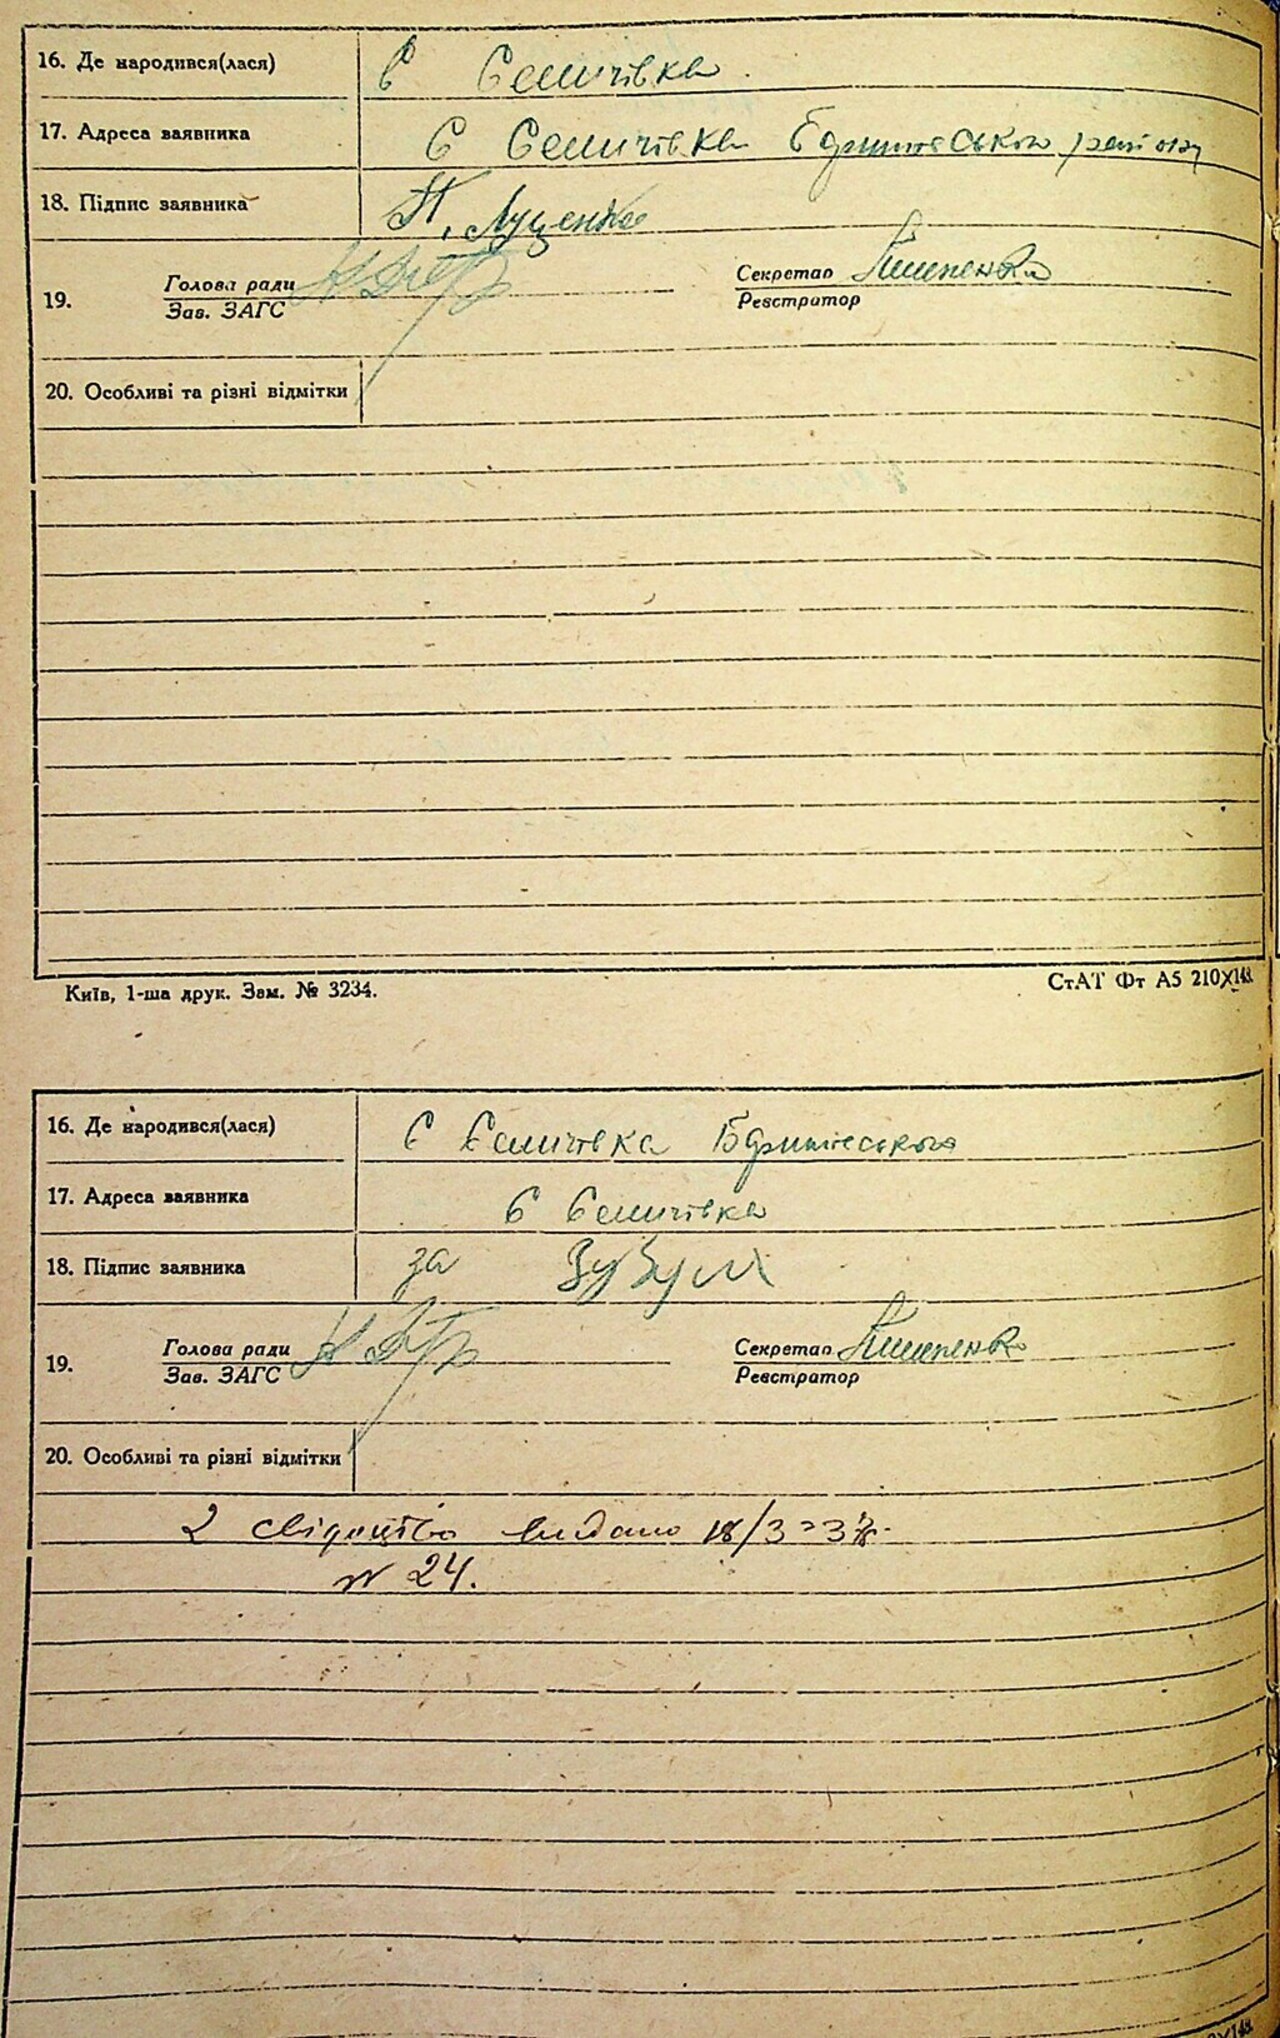 16. Де народився(лася) с Семичівка
17. Адреса заявника с Семичівка
18. Підпис заявника П. Луценко
Голова ради Секретар
19. Зав. ЗАГС Реєстратор
20. Особливі та різні відмітки
Київ, 1-ша друк. Зам. № 3234. СтАТ Фт А5 210X148.
16. Де народився(лася) с Семичівка
17. Адреса заявника с Семичівка
18. Підпис заявника за
Голова ради Секретар
19. Зав. ЗАГС Реєстратор
20. Особливі та різні відмітки
2 свідоцтво видано 18/3
№ 24.